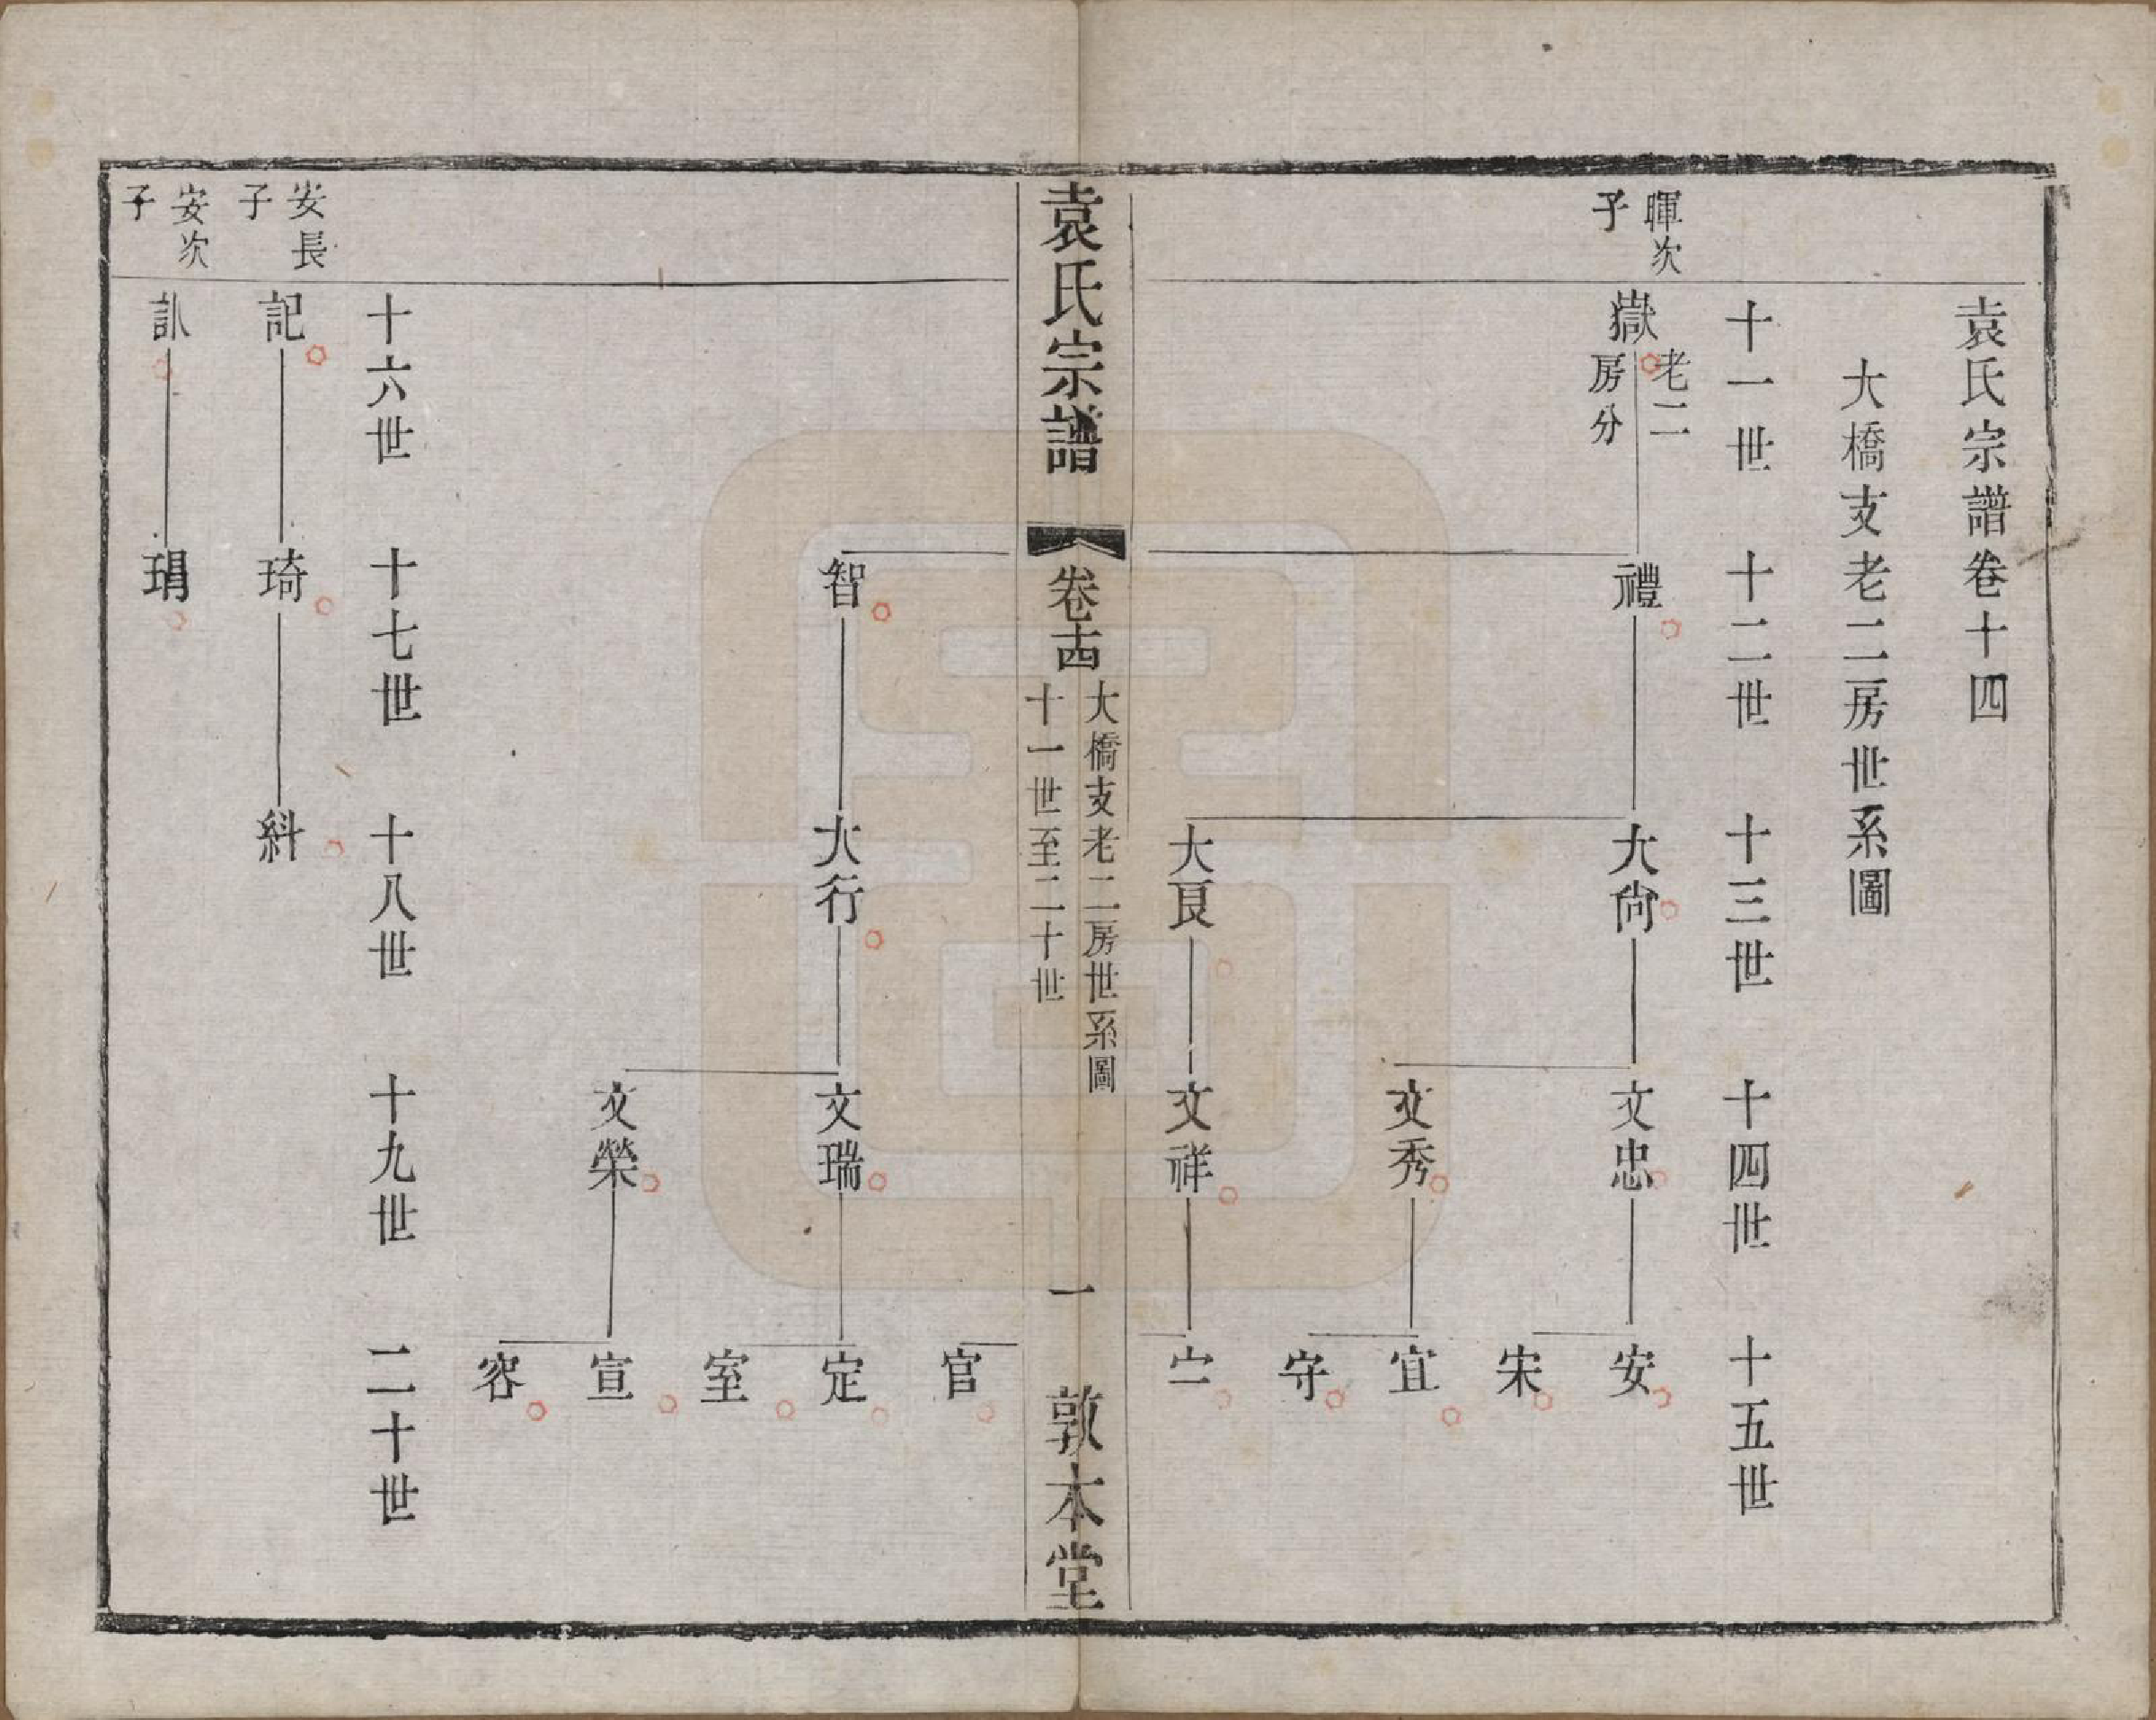 袁氏宗譜卷十四
大橋支老二房世系圖
十一世 十二世 十三世 十四世 十五世
暉次子
嶽 老二房分 禮 大尙 文忠 安
宋
文秀 宜
守
大良 文祥 宁
袁氏宗譜 卷十四 大橋支老二房世系圖 十一世至二十世 一 敦本堂
官
智 大行 文瑞 定
室
文榮 宣
容
十六世 十七世 十八世 十九世 二十世
安長子
記 琦 紏
安次子
訓 琄